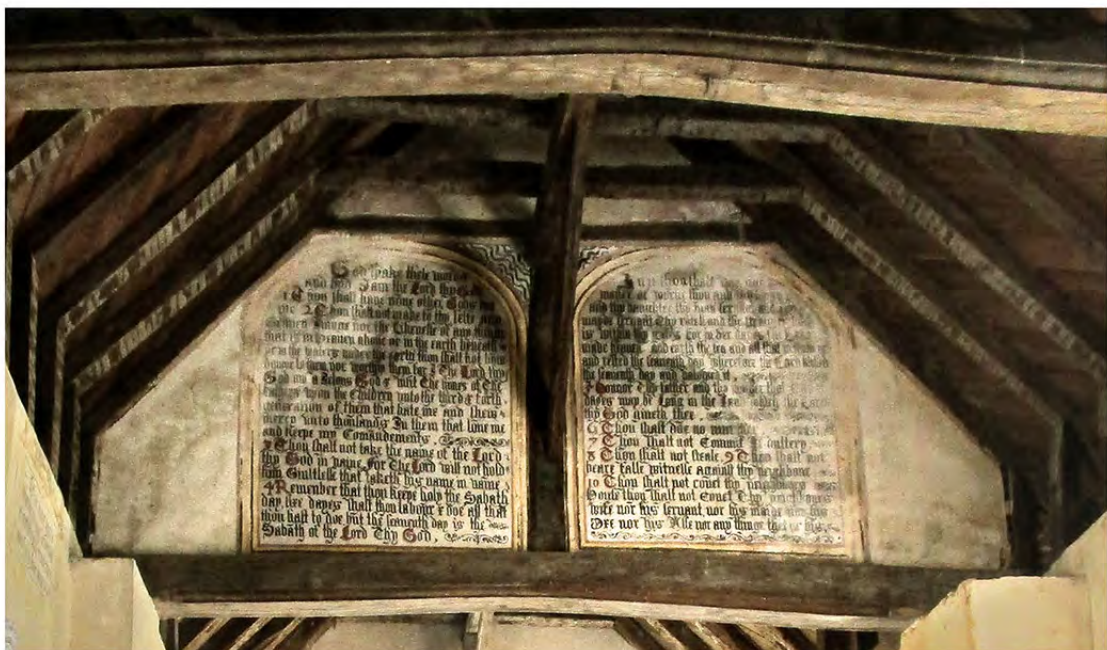 God spake these
and said I am the Lord thy
1 Thou shalt have none other Gods
me 2 Thou shalt not make to thy selfe
graven Image nor the likenesse of any thinge
that is in heaven above or in the earth beneath
or in the waters under the earth thou shalt not bow
downe to them nor worship them for I The Lord thy
God am a Jelous God & visit The sinnes of The
fathers upon the Children unto the third & forth
generation of them that hate me and shew
mercy unto thousands In them that love me
and keepe my Comandements
3 Thou shalt not take the name of the Lord
thy God in vaine For The Lord will not hold
him Guiltlesse that taketh his name in vaine
4 Remember that thou keepe holy the Sabath
day sixe dayes shalt thou labour & doe all that
thou hast to doe but the seaventh day is the
Sabath of the Lord Thy God
In it thou shalt doe no
maner of worke thou and
and thy daughter thy man servant
servant Thy and the
is within thy gates for in sixe dayes
made heaven and earth the sea and all that
and rested the seaventh day wherefore the Lord
the seaventh day and halowed it
5 Honour Thy father and thy mother that
dayes may be Long in the
thy God giveth thee
6 Thou shalt doe no
7 Thou shalt not Commit Adultery
8 Thou shalt not steale 9 Thou shalt not
beare false witnesse against thy neighbour
10 Thou shalt not covet thy neighbours
house thou shalt not Covet Thy
wife nor his servant nor his maide nor his
Oxe nor his Asse nor any thinge that is his